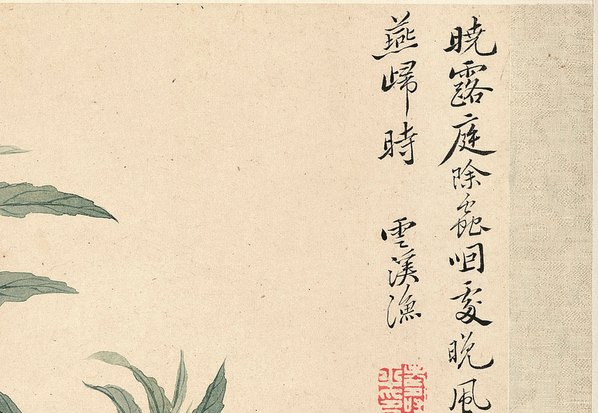 曉露庭除蟲咽處晚風
燕歸時 雲溪漁